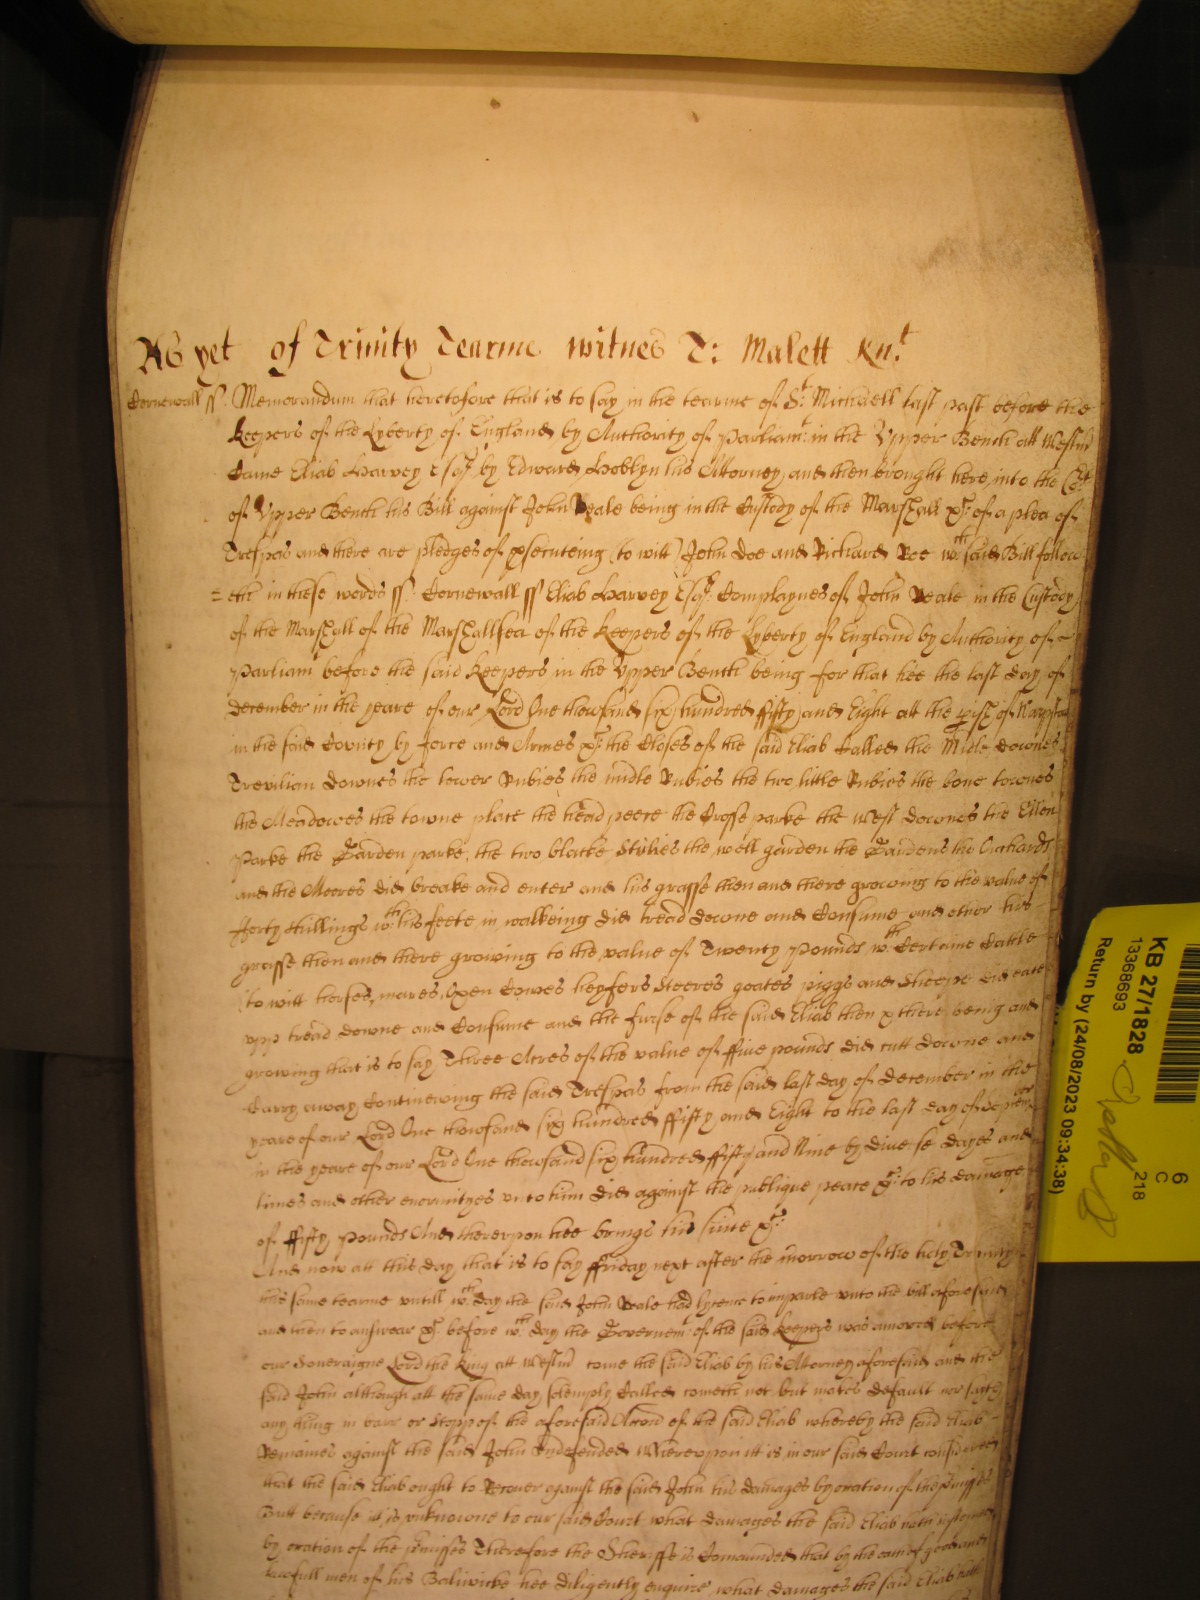 As yet of Trinity Tearme witnes T: Malett Knt
Cornewall ss. Memorandum that heretofore that is to say in the tearme of St Michaell last past before the
Keepers of the Lyberty of England by Authority of Parliamt in the Upper Bench att Westmr
Came Eliab Harvey Esqr by Edward Hoblyn his Attorney and then brought here into the Cort
of Upper Bench his Bill against John Veale being in the Custody of the Marshall &c of a plea of
Trespas and there are pledges of psecuteing (to witt) John Doe and Richard Roe wth said Bill follow
= eth in these words ss. Cornewall ss Eliab Harvey Esqr Complaynes of John Veale in the Custody
of the Marshall of the Marshallsea of the Keepers of the Lyberty of England by Authority of
Parliamt before the said Keepers in the Upper Bench being for that hee the last day of
december in the yeare of our Lord One thowsand six hundred ffifty and Eight att the pish of
in the said County by force and Armes &c the Closes of the said Eliab Called the Midle downes
Trevilian downes the lower Rubies the midle Rubies the two little Rubies the
the Meadowes the towne place the head peece the Crosse parke the West downes the
Parke the Garden parke, the two blacke Stylies the well garden the Gardens the Orchards
and the Moores did breake and enter and his grasse then and there growing to the value of
fforty shillings wth his feete in walkeing did tread downe and Consume and other his
grasse then and there growing to the value of Twenty Pounds wth Certaine Cattle
(to witt horses, mares, Oxen Cowes heyfers Steeres goates piggs and Sheepe did eate
upp tread downe and Consume and the furse of the said Eliab then & there being and
growing that is to say Three Acres of the value of ffive pounds did cutt downe and
Carry away Continewing the said Trespas from the said last day of december in the
yeare of our Lord One thowsand six hundred ffifty and Eight to the last day of
in the yeare of our Lord One thowsand six hundred ffifty and Nine by diverse dayes and
times and other enormityes unto him did against the publique peace &c to his damage
of ffifty pounds And thereupon hee brings his suite &c
And now att this day that is to say ffriday next after the morrow of the holy Trinity
this same tearme untill wch day the said John Veale had lycence to imparle unto the bill aforesaid
and then to answear &c before wch day the Governemt of the said Keepers was amoved before
our Soveraigne Lord the King att Westmr come the said Eliab by his Attorney aforesaid and the
said John although att the same day solemply Called cometh not but makes default nor sayth
any thing in barr or stopp of the aforesaid Accon of the said Eliab whereby the said Eliab
Remaines against the said John Undefended Whereupon itt is in our said Court considered
that the said Eliab ought to Recover against the said John his damages by occation of the pmisses
Butt because it is unknowne to our said Court what damages the said Eliab hath susteyned
by occation of the pmisses Therefore the Sheriffe is Comaunded that by the oath of good and
lawfull men of his Baliwicke hee diligently enquire what damages the said Eliab hath
KB 27/1828
13368693
Return by (24/08/2023 09:34:38)
6
C
218